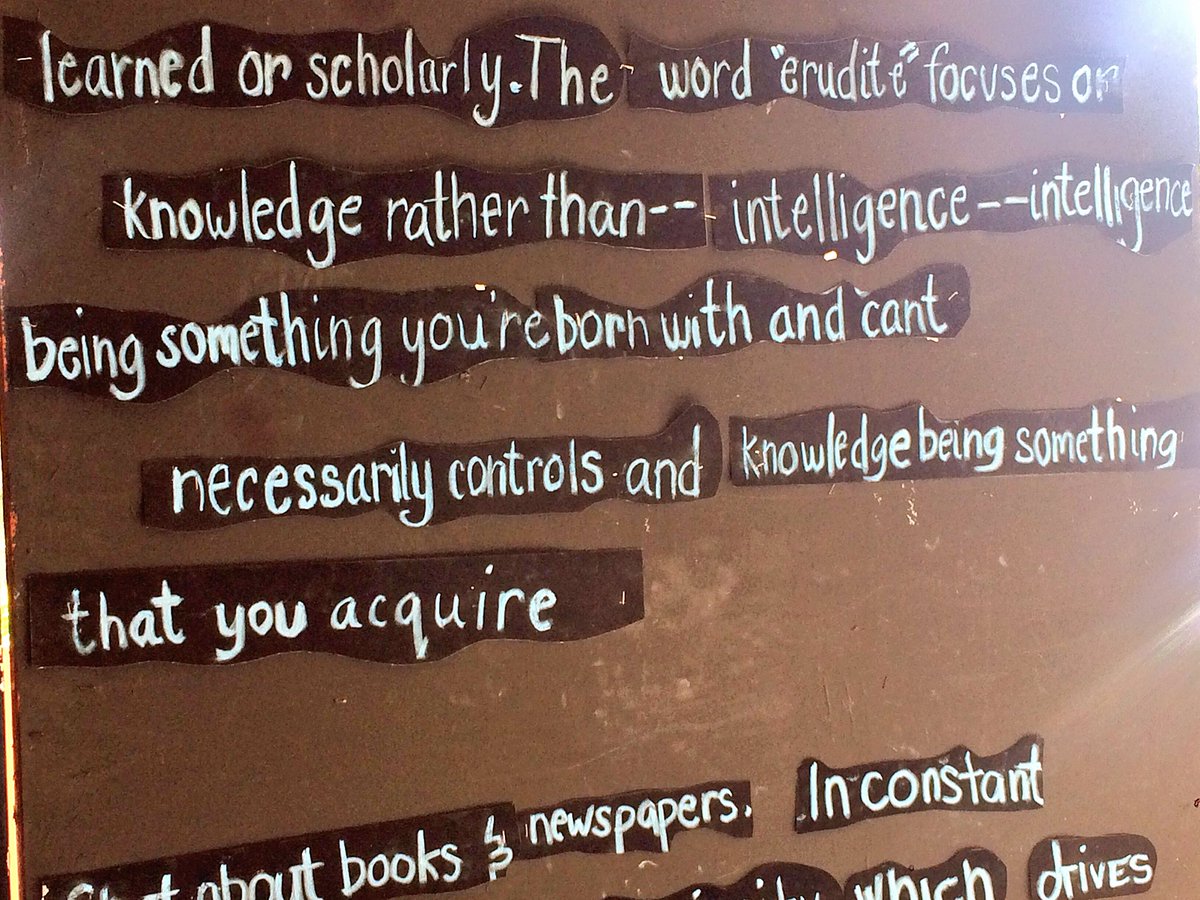 learned or scholarly. The word "erudite" focuses or
knowledge rather than-- intelligence--intelligence
being something you're born with and cant
necessarily controls and knowledge being something
that you acquire
about books & newspapers. In constant
which drives